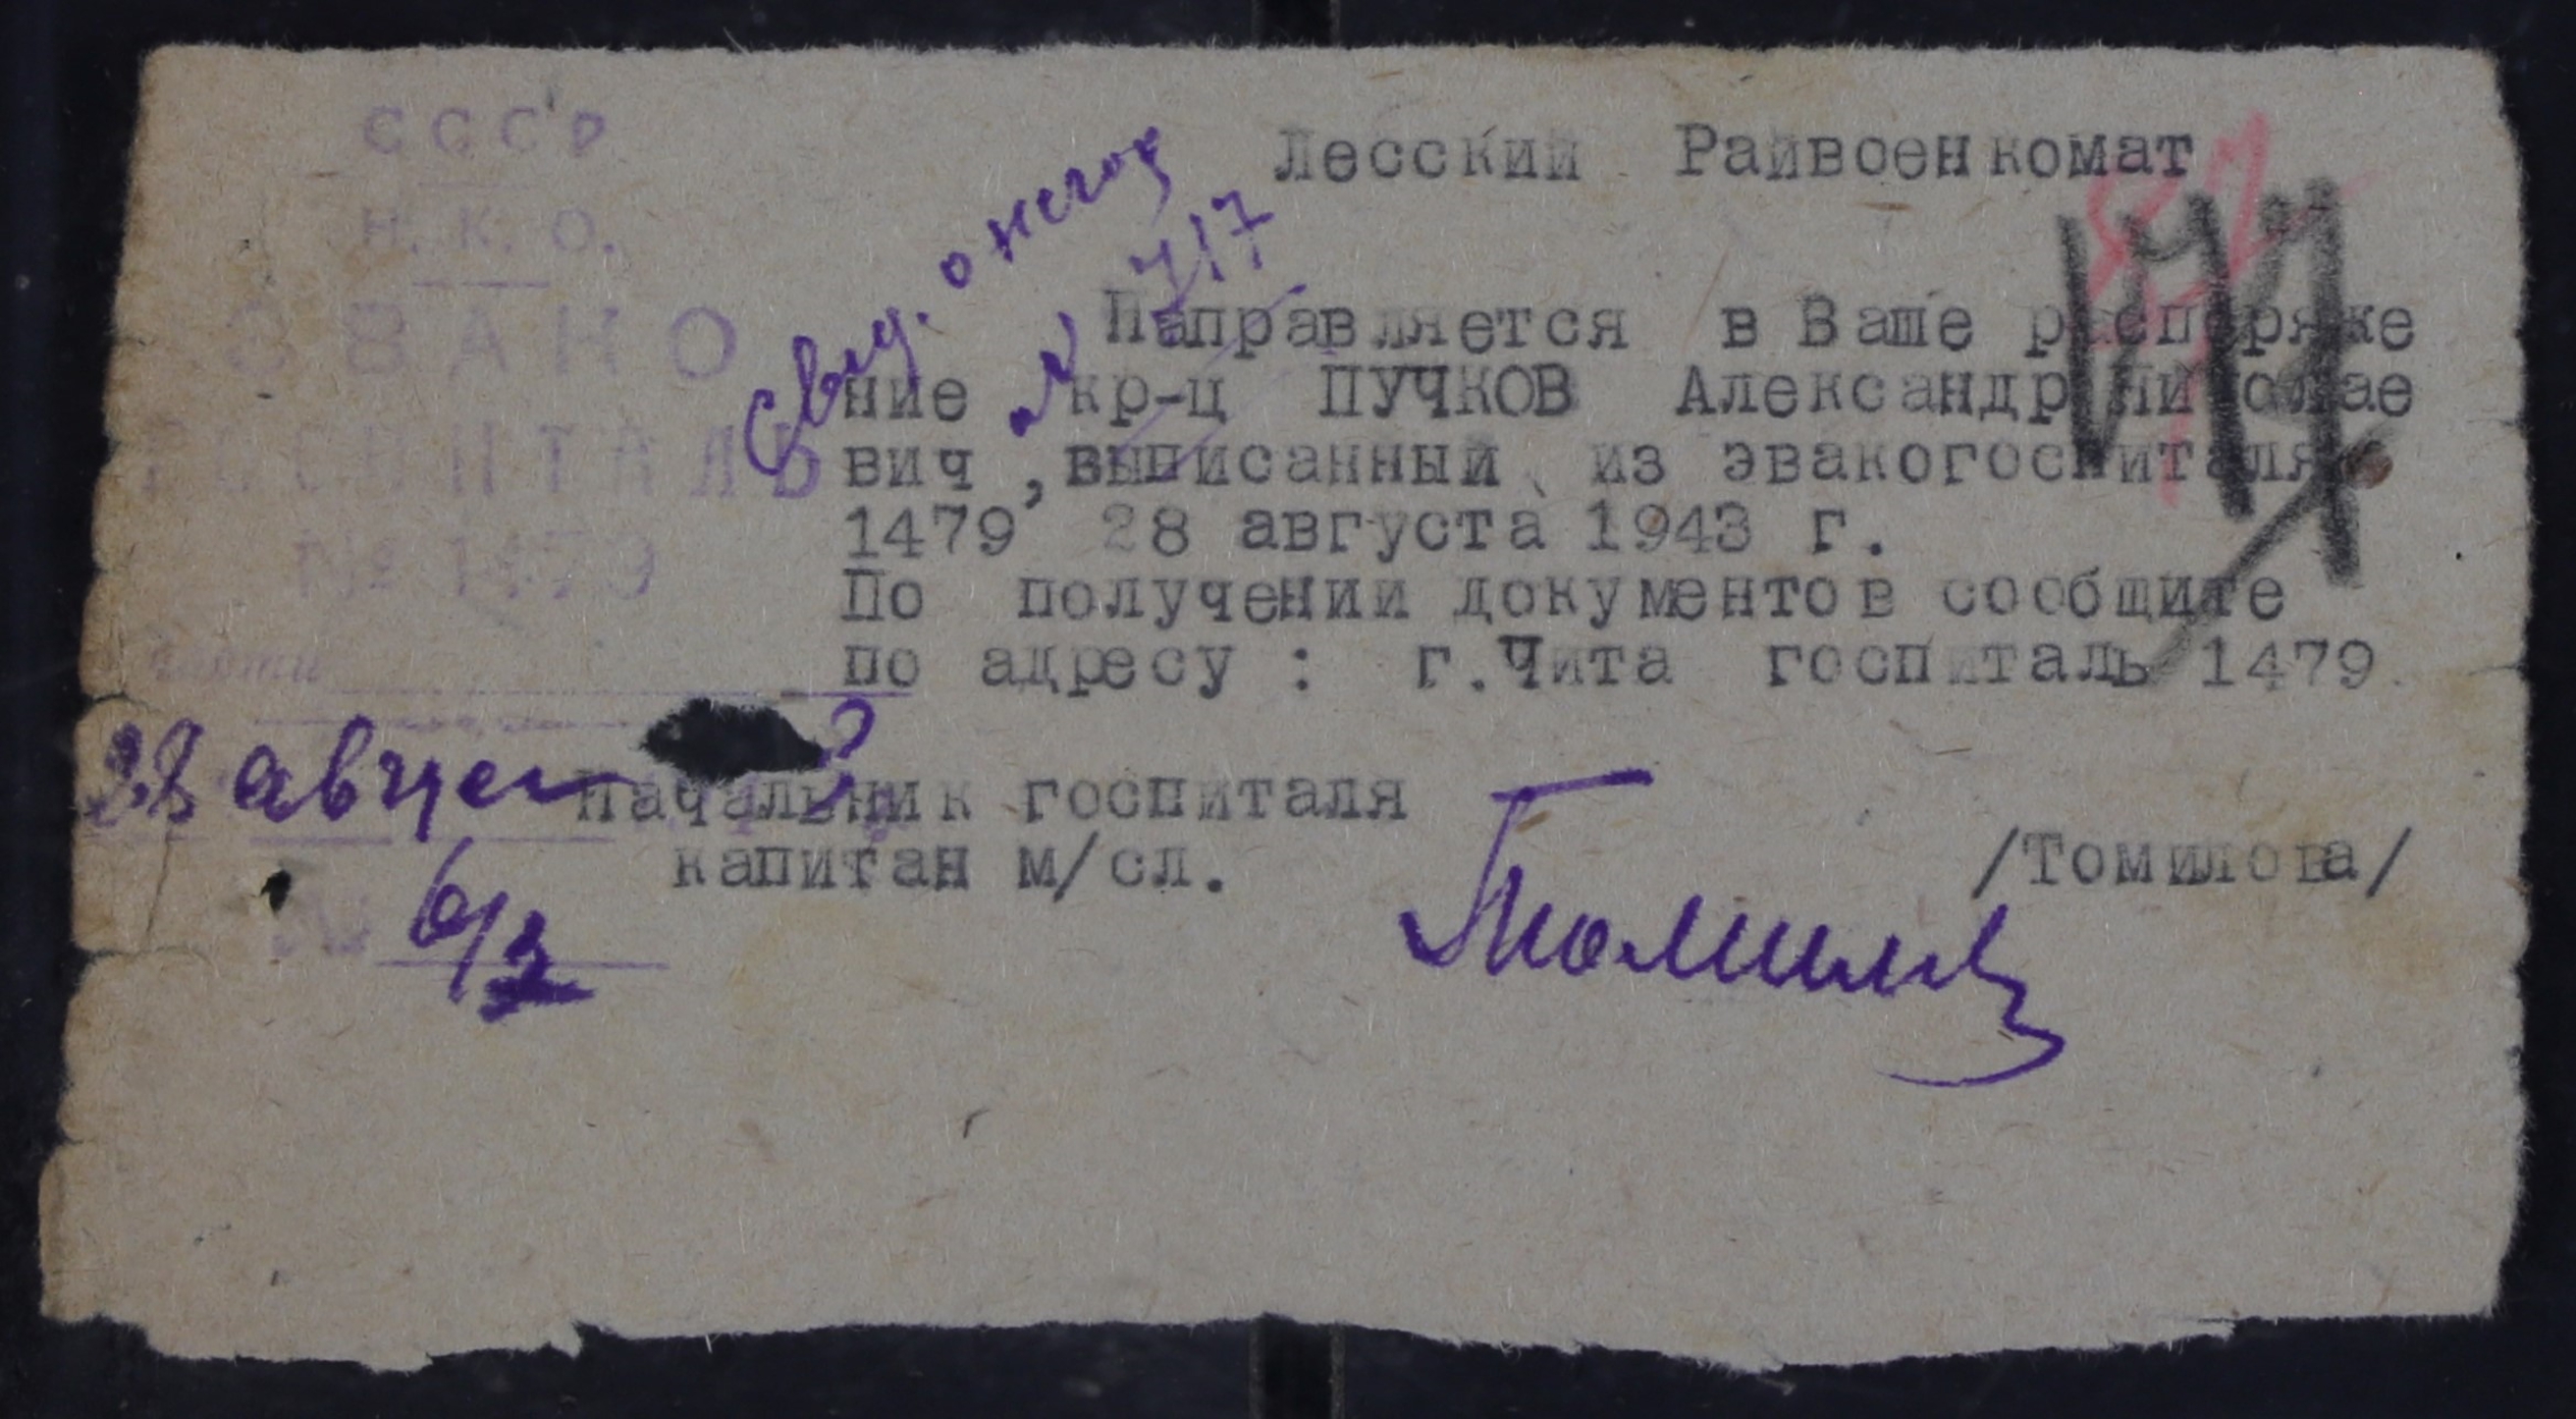 СССР
Н. К. О.
ЭВАКО
ГОСПИТАЛЬ
№ 1479
части
28 август
№ 6/3
Свид. о негод
№ 717
Лесский Райвоенкомат
147
Направляется в Ваше распоряже
ние кр-ц ПУЧКОВ Александр Николае
вич , выписанный из эвакогоспиталя
1479 28 августа 1943 г.
По получении документов сообщите
по адресу : г.Чита госпиталь 1479
Начальник госпиталя
капитан м/сл. /Томилова/
Томилов